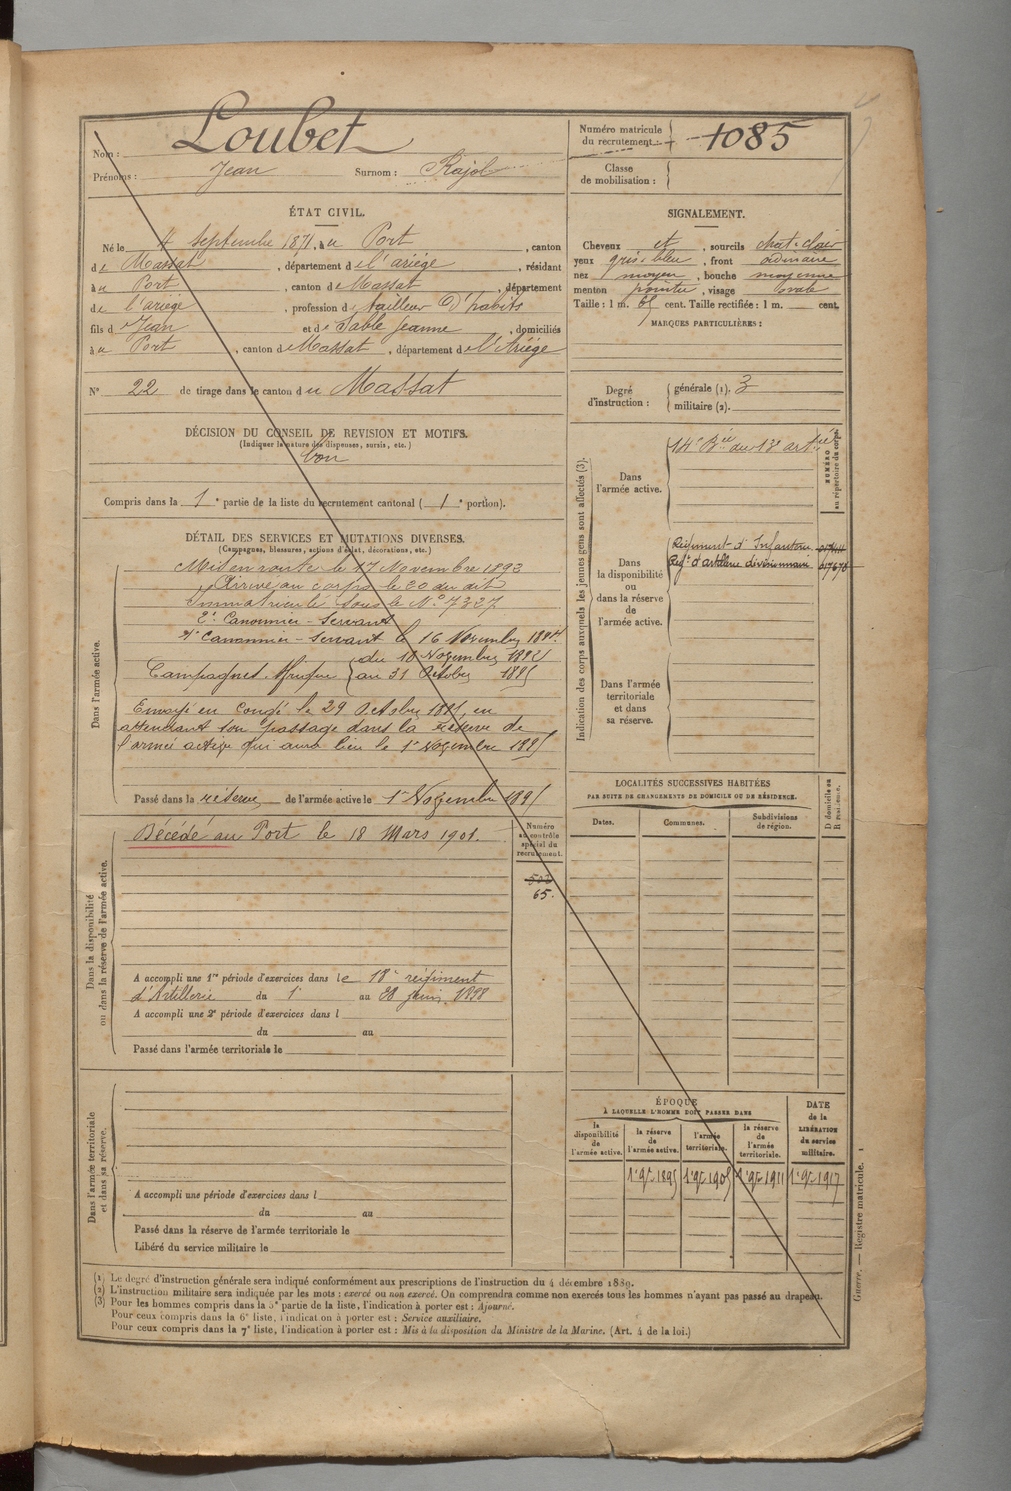 Nom : Loubet
Prénoms : Jean Surnom : Rajol
Numéro matricule du recrutement 1085
Classe de mobilisation :
ÉTAT CIVIL.
Né le 4 Septembre 1871, à u Port, canton
de Massat, département de l'ariége, résidant
à u Port, canton de Massat, département
de l'ariége, profession de tailleur d'habits
fils de Jean et de Sable Jeanne, domiciliés
à u Port, canton de Massat, département de l'Ariége
N° 22 de tirage dans le canton du Massat
SIGNALEMENT.
Cheveux et, sourcils chat-clair
yeux gris-bleu, front ordinaire
nez moyen, bouche moyenne
menton pointu, visage ovale
Taille : 1 m. 65 cent. Taille rectifiée : 1 m. cent.
MARQUES PARTICULIÈRES :
Degré d'instruction :
générale (1). 3
militaire (2).
DÉCISION DU CONSEIL DE REVISION ET MOTIFS.
(Indiquer la nature des dispenses, sursis, etc.)
bon
Compris dans la 1e partie de la liste du recrutement cantonal ( 1e portion).
DÉTAIL DES SERVICES ET MUTATIONS DIVERSES.
(Campagnes, blessures, actions d'éclat, décorations, etc.)
Dans l'armée active.
Mis en route le 17 Novembre 1892
Arrivé au corps le 20 du dit
Immatriculé sous le N° 7327
2e Canonnier-Servant
1r Canonnier-Servant le 16 Novembre 1894.
Campagnes. Afrique du 18 Novembre 1892
au 31 Octobre 1895
Envoyé en congé le 29 Octobre 1895, en
attendant son passage dans la réserve de
l'armée active qui aura lieu le 1er Novembre 1895
Passé dans la réserve de l'armée active le 1er Novembre 1895
Dans la disponibilité ou dans la réserve de l'armée active.
Décédé au Port le 18 Mars 1901.
Numéro au contrôle spécial du recrutement.
502
65.
A accompli une 1re période d'exercices dans le 18e régiment
d'Artillerie du 1er au 28 juin 1898
A accompli une 2e période d'exercices dans l
du au
Passé dans l'armée territoriale le
Dans l'armée territoriale et dans sa réserve.
A accompli une période d'exercices dans l
du au
Passé dans la réserve de l'armée territoriale le
Libéré du service militaire le
Indication des corps auxquels les jeunes gens sont affectés (3).
NUMÉRO au répertoire du corps.
Dans l'armée active.
14e Bie du 13e artrie
Dans la disponibilité ou dans la réserve de l'armée active.
Régiment d'Infanterie
Régt d'artillerie divisionnaire
Dans l'armée territoriale et dans sa réserve.
LOCALITÉS SUCCESSIVES HABITÉES
PAR SUITE DE CHANGEMENTS DE DOMICILE OU DE RÉSIDENCE.
Dates. Communes. Subdivisions de région. D domicile ou R résidence.
ÉPOQUE
À LAQUELLE L'HOMME DOIT PASSER DANS
la disponibilité de l'armée active.
la réserve de l'armée active.
l'armée territoriale.
la réserve de l'armée territoriale.
DATE de la LIBÉRATION du service militaire.
1er 9bre 1895 1er 9bre 1905 1er 9bre 1911 1er 9bre 1917
Guerre. — Registre matricule. 1
(1) Le degré d'instruction générale sera indiqué conformément aux prescriptions de l'instruction du 4 décembre 1889.
(2) L'instruction militaire sera indiquée par les mots : exercé ou non exercé. On comprendra comme non exercés tous les hommes n'ayant pas passé au drapeau.
(3) Pour les hommes compris dans la 5e partie de la liste, l'indication à porter est : Ajourné.
Pour ceux compris dans la 6e liste, l'indication à porter est : Service auxiliaire.
Pour ceux compris dans la 7e liste, l'indication à porter est : Mis à la disposition du Ministre de la Marine. (Art. 4 de la loi.)